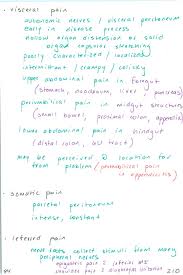 • visceral pain
autonomic nerves / visceral peritoneum
early in disease process
hollow organ distension or solid
organ capsular stretching
poorly characterized / localized
intermittent / crampy / colicky
upper abdominal pain in foregut
(stomach, duodenum, liver, pancreas)
periumbilical pain in midgut structures
(small bowel, proximal colon, appendix)
lower abdominal pain in hindgut
(distal colon, GU tract)
may be perceived @ location far
from problem (periumbilical pain in appendicitis)
• somatic pain
parietal peritoneum
intense, constant
• referred pain
nerves collect stimuli from many
peripheral nerves
epigastric pain = inferior MI
shoulder pain = diaphragm irritation